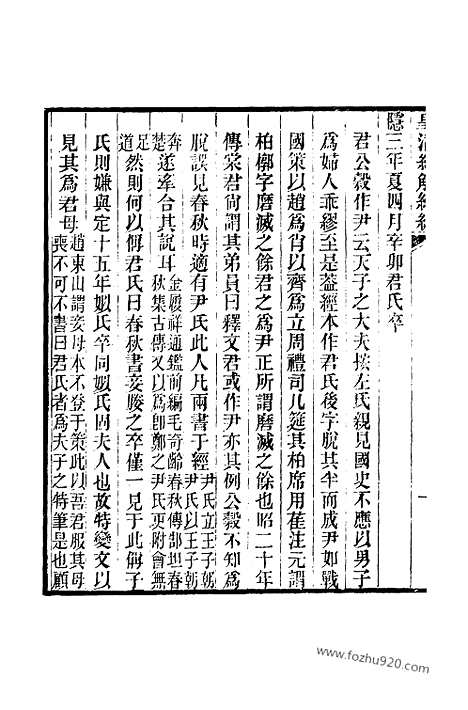 皇清經解續編
隱三年夏四月辛卯君氏卒
君公穀作尹云天子之大夫按左氏親見國史不應以男子
爲婦人乖繆至是葢經本作君氏後字脫其半而成尹如戰
國策以趙爲肖以齊爲立周禮司几筵其柏席用萑注元謂
柏槨字磨滅之餘君之爲尹正所謂磨滅之餘也昭二十年
傳棠君尙謂其弟員曰釋文君或作尹亦其例公穀不知爲
脫誤見春秋時適有尹氏此人凡兩書于經尹氏立王子朝尹氏以王子朝
奔楚遂牽合其說耳金履祥通鑑前編毛奇齡春秋傳郝坦春秋集古傳又以爲卽鄭之尹氏更附會無
足道然則何以偁君氏曰春秋書妾媵之卒僅一見于此偁子
氏則嫌與定十五年姒氏卒同姒氏固夫人也故特變文以
見其爲君母趙東山謂妾母本不登于策此以吾君服其母喪不可不書曰君氏者爲夫子之特筆是也顧
一
www.fozhu920.com